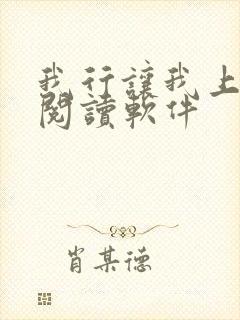 我行讓我上
閱讀軟件
肖某德